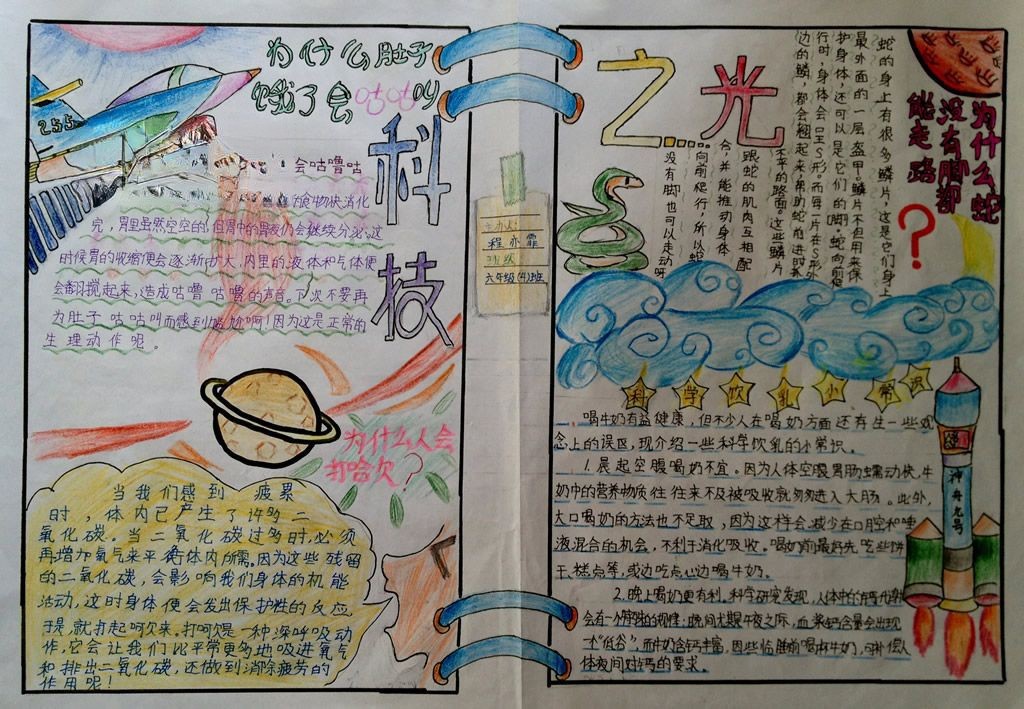 为什么肚子
饿了会咕咕叫
科技
255
会咕噜咕
食物快消化
完，胃里虽然空空的，但胃中的胃液仍会继续分泌。这
时候胃的收缩便会逐渐扩大，内里的液体和气体便
会翻搅起来，造成咕噜咕噜的声音。下次不要再
为肚子咕咕叫而感到尴尬啊！因为这是正常的
生理动作呢。
为什么人会
打哈欠？
当我们感到疲累
时，体内已产生了许多二
氧化碳。当二氧化碳过多时，必须
再增加氧气来平衡体内所需。因为这些残留
的二氧化碳，会影响我们身体的机能
活动，这时身体便会发出保护性的反应，
于是，就打起呵欠来。打呵欠是一种深呼吸动
作，它会让我们比平常更多地吸进氧气
和排出二氧化碳，还做到消除疲劳的
作用呢！
主办人：
程亦霏
班级
六年级(4)班
之……光
为什么蛇
没有脚都
能走路
？
蛇的身上有很多鳞片，这是它们身上
最外面的一层盔甲。鳞片不但用来保
护身体，还可以是它们的脚。蛇向前
行时，身体会呈S形，而每一片在S形外
边的鳞，都会翘起来，帮助蛇前进时抓
不平的路面。这些鳞片
跟蛇的肌肉互相配
合，并能推动身体
向前爬行，所以蛇
没有脚也可以走动呀
科学饮乳小常识
喝牛奶有益健康，但不少人在喝奶方面还存生一些观
念上的误区，现介绍一些科学饮乳的小常识。
1.晨起空腹喝奶不宜。因为人体空腹胃肠蠕动快，牛
奶中的营养物质往往来不及被吸收就匆匆进入大肠。此外，
大口喝奶的方法也不足取，因为这样会减少在口腔和唾
液混合的机会，不利于消化吸收。喝奶前最好先吃些饼
干、糕点等，或边吃点心边喝牛奶。
2.晚上喝奶更有利。科学研究发现，人体中的钙代谢
会有一个昼夜的规律，晚间尤期午夜之际，血
含量会出现
个“低谷”，而牛奶含钙丰富，因些临睡前喝杯牛奶，可补偿人
体夜间对钙的要求。
神舟九号